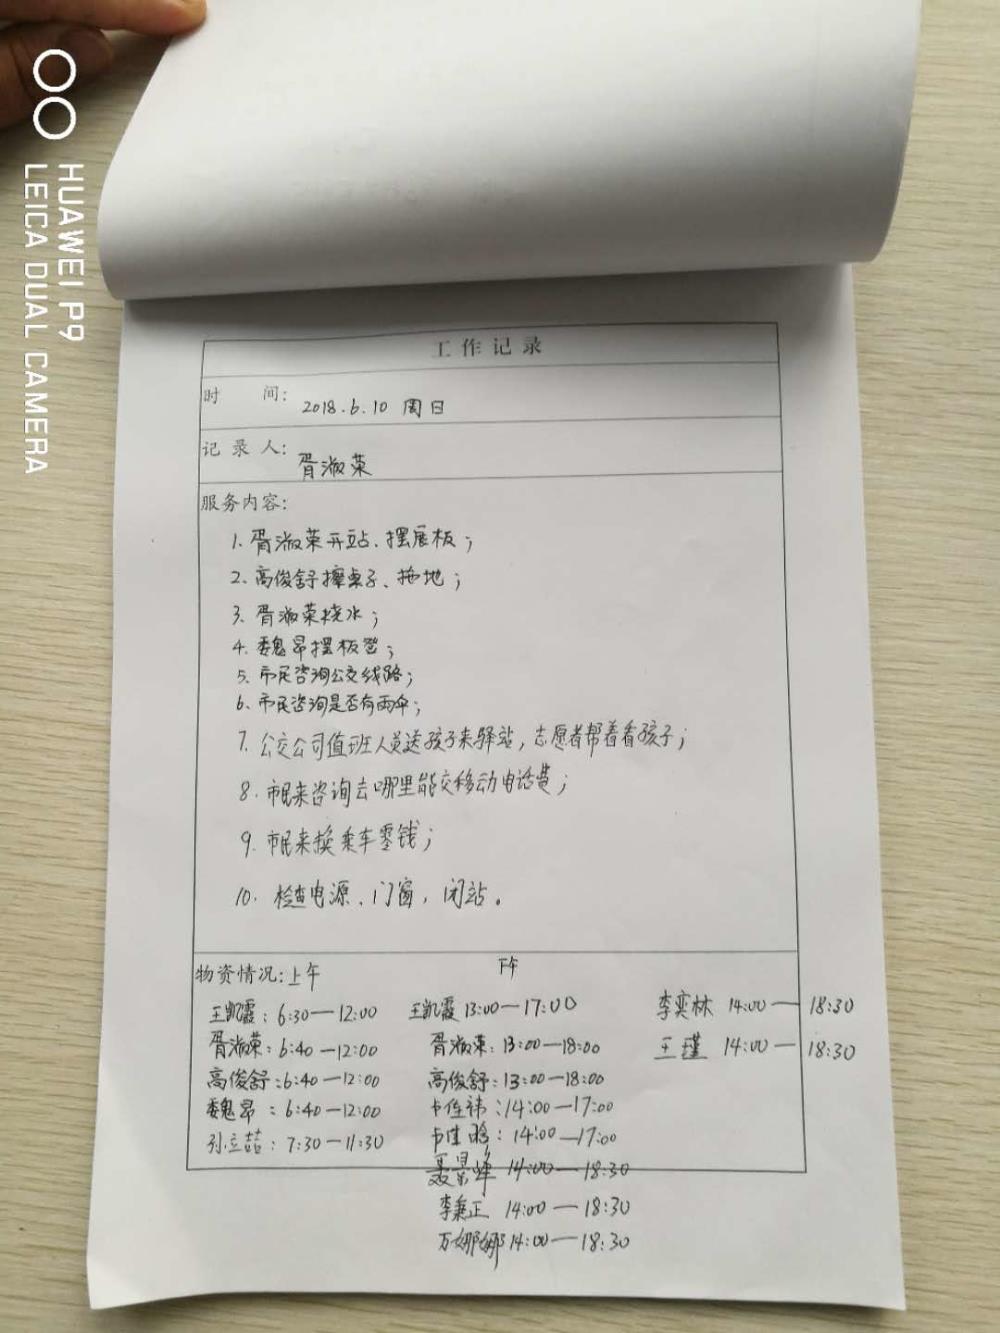 HUAWEI P9
LEICA DUAL CAMERA
工作记录
时 间: 2018.6.10 周日
记录人: 胥淑荣
服务内容:
1. 胥淑荣开站、摆展板;
2. 高俊舒擦桌子、拖地;
3. 胥淑荣烧水;
4. 魏昂摆板凳;
5. 市民咨询公交线路;
6. 市民咨询是否有雨伞;
7. 公交公司值班人员送孩子来驿站,志愿者帮着看孩子;
8. 市民来咨询去哪里能交移动电话费;
9. 市民来换乘车零钱;
10. 检查电源、门窗,闭站。
物资情况:上午
王凯霞: 6:30—12:00
胥淑荣: 6:40—12:00
高俊舒: 6:40—12:00
魏昂: 6:40—12:00
孙立喆: 7:30—11:30
下午
王凯霞 13:00—17:00
胥淑荣: 13:00—18:00
高俊舒: 13:00—18:00
卞佳祎: 14:00—17:00
卞佳晗: 14:00—17:00
聂景峰 14:00—18:30
李秉正 14:00—18:30
万娜娜 14:00—18:30
李奕林 14:00—18:30
王瑾 14:00—18:30